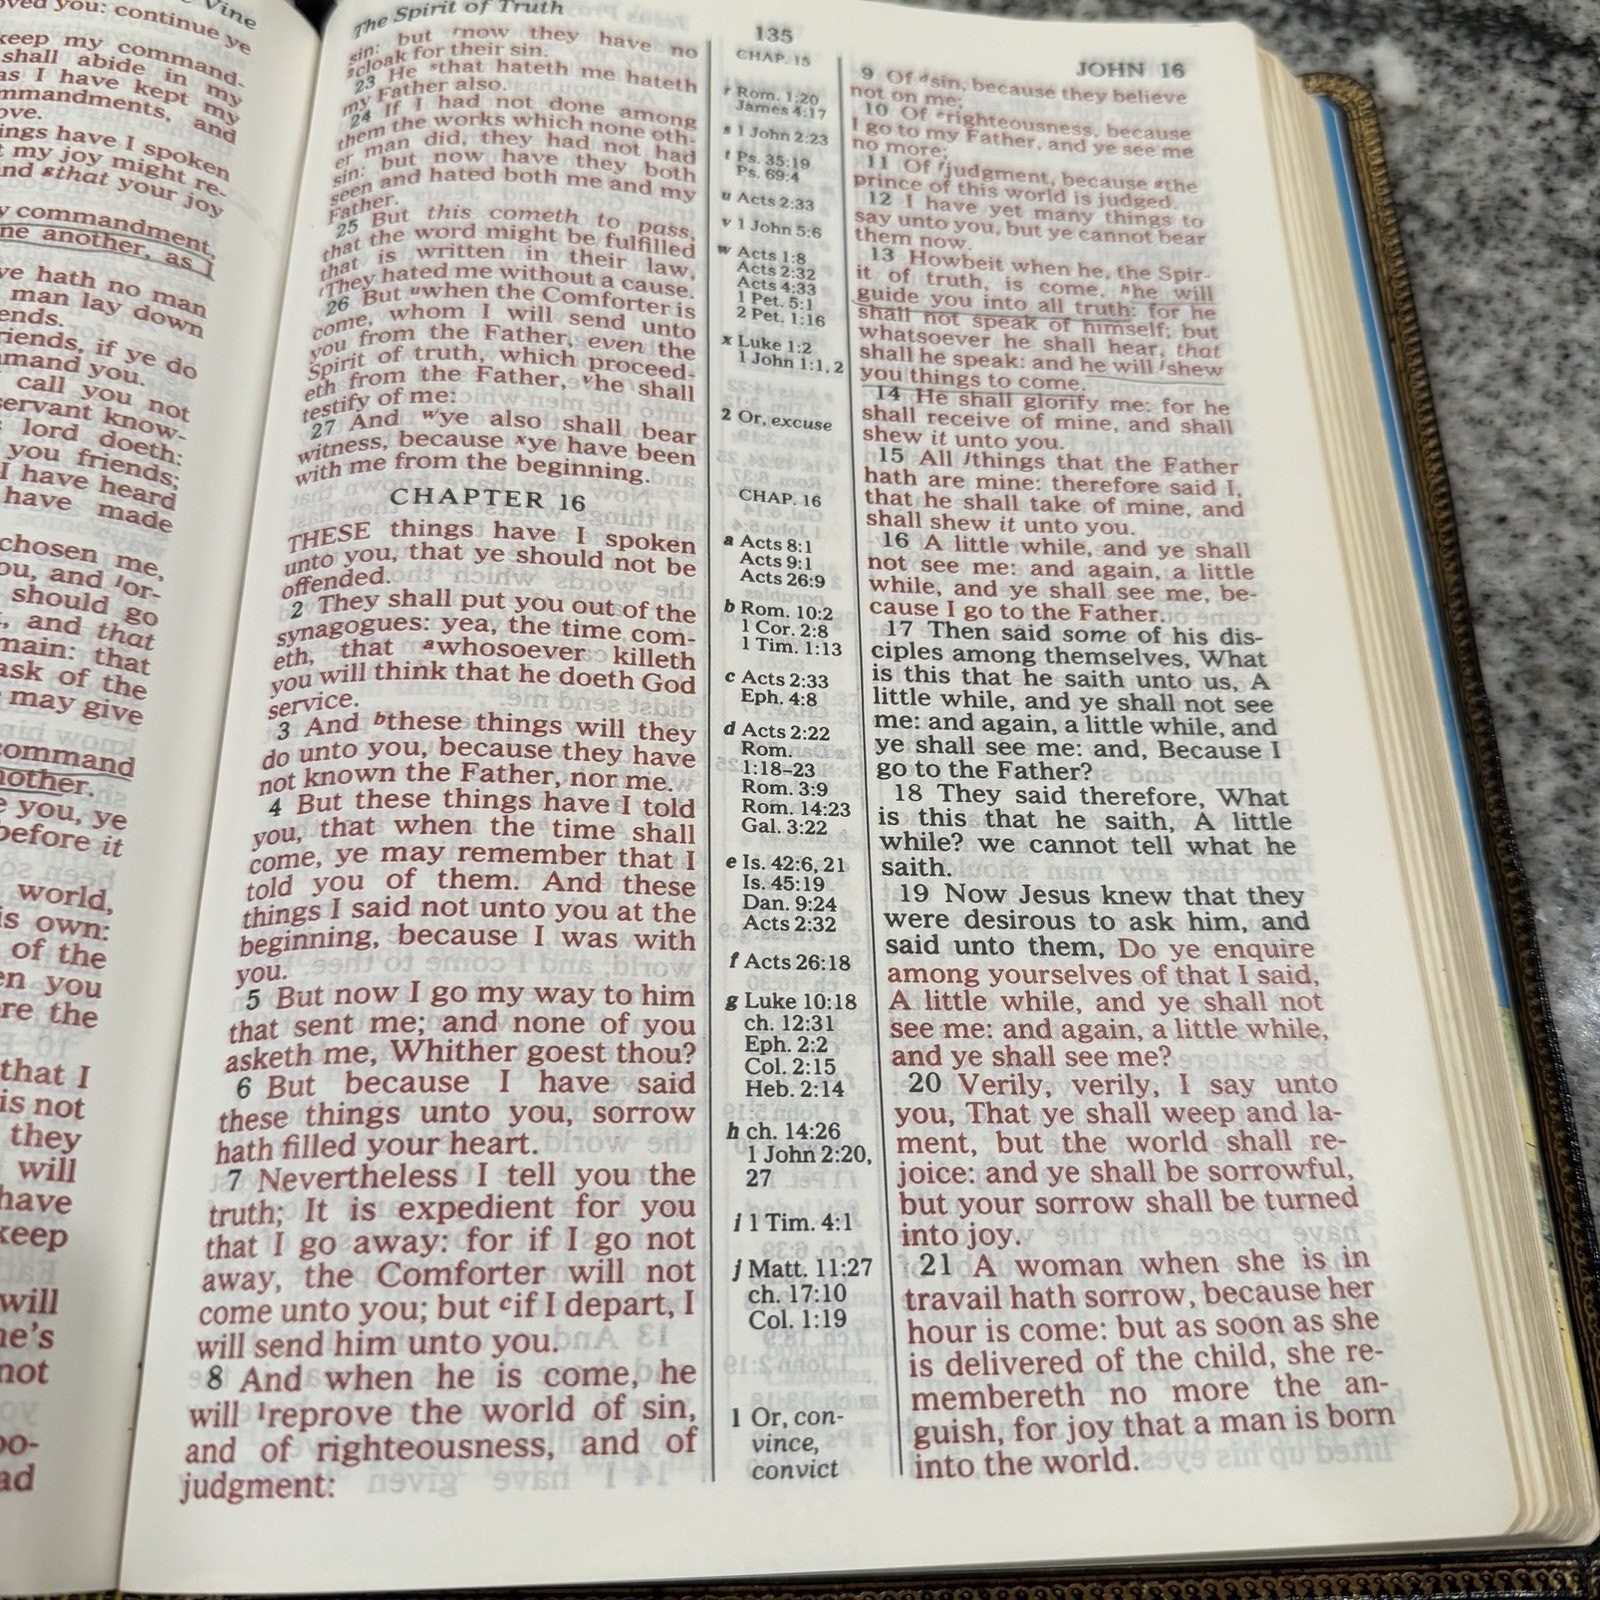 Vine
oved you: continue ye
keep my command-
shall abide in my
as I have kept my
mmandments, and
ove.
ings have I spoken
t my joy might re-
nd gthat your joy
y commandment,
ne another, as I
ve hath no man
man lay down
ends.
riends, if ye do
mmand you.
call you not
servant know-
lord doeth:
you friends;
I have heard
have made
chosen me,
ou, and lor-
should go
, and that
main: that
ask of the
may give
command
nother.
e you, ye
before it
world,
is own:
of the
en you
re the
that I
is not
they
will
have
keep
will
ne's
not
oo-
ad
The Spirit of Truth
sin: but rnow they have no
2cloak for their sin.
23 He sthat hateth me hateth
my Father also.
24 If I had not done among
them the works which none oth-
er man did, they had not had
sin: but now have they both
seen and hated both me and my
Father.
25 But this cometh to pass,
that the word might be fulfilled
that is written in their law,
tThey hated me without a cause.
26 But uwhen the Comforter is
come, whom I will send unto
you from the Father, even the
Spirit of truth, which proceed-
eth from the Father, vhe shall
testify of me:
27 And wye also shall bear
witness, because xye have been
with me from the beginning.
CHAPTER 16
THESE things have I spoken
unto you, that ye should not be
offended.
2 They shall put you out of the
synagogues: yea, the time com-
eth, that awhosoever killeth
you will think that he doeth God
service.
3 And bthese things will they
do unto you, because they have
not known the Father, nor me.
4 But these things have I told
you, that when the time shall
come, ye may remember that I
told you of them. And these
things I said not unto you at the
beginning, because I was with
you.
5 But now I go my way to him
that sent me; and none of you
asketh me, Whither goest thou?
6 But because I have said
these things unto you, sorrow
hath filled your heart.
7 Nevertheless I tell you the
truth; It is expedient for you
that I go away: for if I go not
away, the Comforter will not
come unto you; but cif I depart, I
will send him unto you.
8 And when he is come, he
will 1reprove the world of sin,
and of righteousness, and of
judgment:
135
CHAP. 15
r Rom. 1:20
James 4:17
s 1 John 2:23
t Ps. 35:19
Ps. 69:4
u Acts 2:33
v 1 John 5:6
w Acts 1:8
Acts 2:32
Acts 4:33
1 Pet. 5:1
2 Pet. 1:16
x Luke 1:2
1 John 1:1, 2
2 Or, excuse
CHAP. 16
a Acts 8:1
Acts 9:1
Acts 26:9
b Rom. 10:2
1 Cor. 2:8
1 Tim. 1:13
c Acts 2:33
Eph. 4:8
d Acts 2:22
Rom.
1:18–23
Rom. 3:9
Rom. 14:23
Gal. 3:22
e Is. 42:6, 21
Is. 45:19
Dan. 9:24
Acts 2:32
f Acts 26:18
g Luke 10:18
ch. 12:31
Eph. 2:2
Col. 2:15
Heb. 2:14
h ch. 14:26
1 John 2:20,
27
i 1 Tim. 4:1
j Matt. 11:27
ch. 17:10
Col. 1:19
1 Or, con-
vince,
convict
JOHN 16
9 Of dsin, because they believe
not on me;
10 Of erighteousness, because
I go to my Father, and ye see me
no more;
11 Of fjudgment, because gthe
prince of this world is judged.
12 I have yet many things to
say unto you, but ye cannot bear
them now.
13 Howbeit when he, the Spir-
it of truth, is come, hhe will
guide you into all truth: for he
shall not speak of himself; but
whatsoever he shall hear, that
shall he speak: and he will ishew
you things to come.
14 He shall glorify me: for he
shall receive of mine, and shall
shew it unto you.
15 All jthings that the Father
hath are mine: therefore said I,
that he shall take of mine, and
shall shew it unto you.
16 A little while, and ye shall
not see me: and again, a little
while, and ye shall see me, be-
cause I go to the Father.
17 Then said some of his dis-
ciples among themselves, What
is this that he saith unto us, A
little while, and ye shall not see
me: and again, a little while, and
ye shall see me: and, Because I
go to the Father?
18 They said therefore, What
is this that he saith, A little
while? we cannot tell what he
saith.
19 Now Jesus knew that they
were desirous to ask him, and
said unto them, Do ye enquire
among yourselves of that I said,
A little while, and ye shall not
see me: and again, a little while,
and ye shall see me?
20 Verily, verily, I say unto
you, That ye shall weep and la-
ment, but the world shall re-
joice: and ye shall be sorrowful,
but your sorrow shall be turned
into joy.
21 A woman when she is in
travail hath sorrow, because her
hour is come: but as soon as she
is delivered of the child, she re-
membereth no more the an-
guish, for joy that a man is born
into the world.